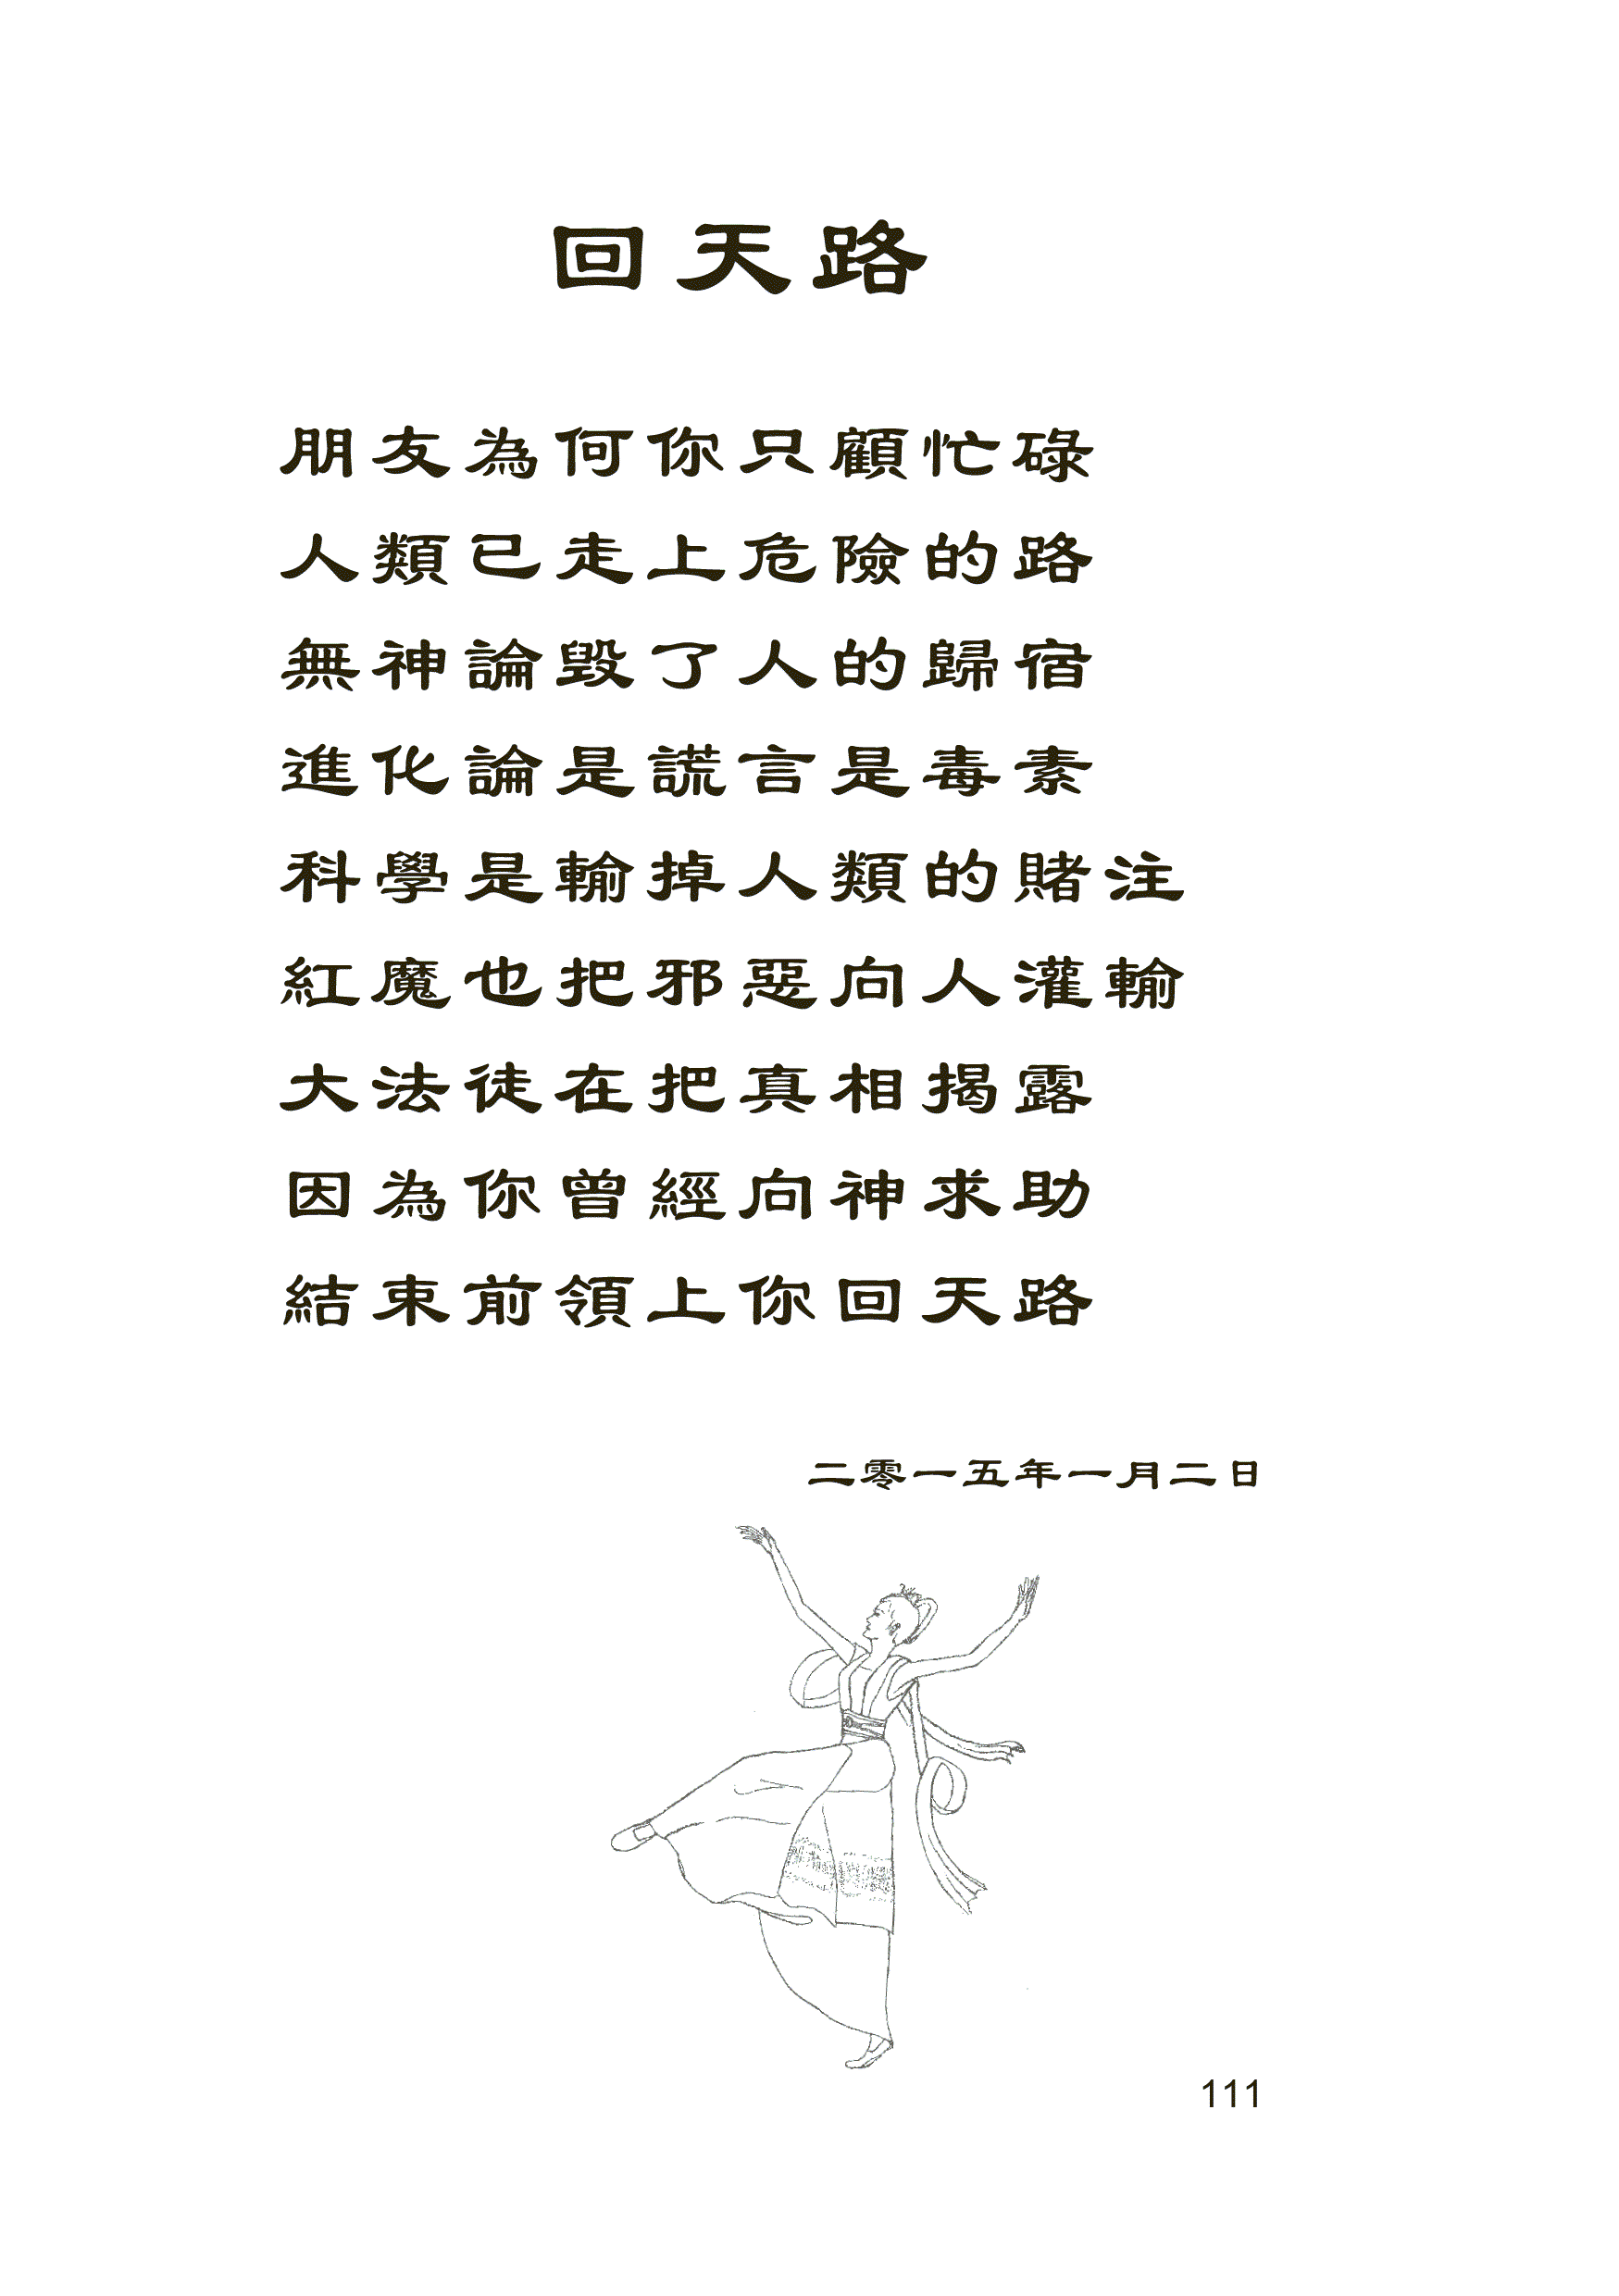 回天路
朋友為何你只顧忙碌
人類已走上危險的路
無神論毀了人的歸宿
進化論是謊言是毒素
科學是輸掉人類的賭注
紅魔也把邪惡向人灌輸
大法徒在把真相揭露
因為你曾經向神求助
結束前領上你回天路
二零一五年一月二日
111